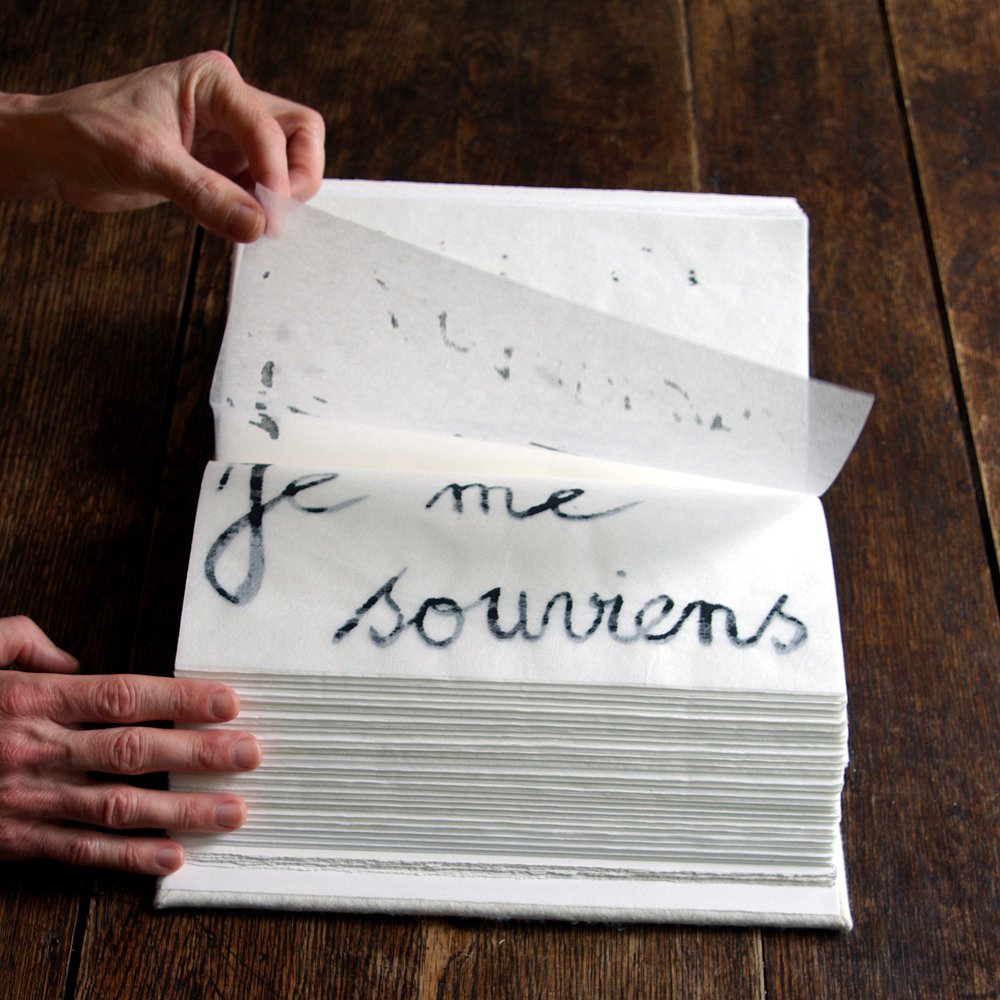 je me
souviens